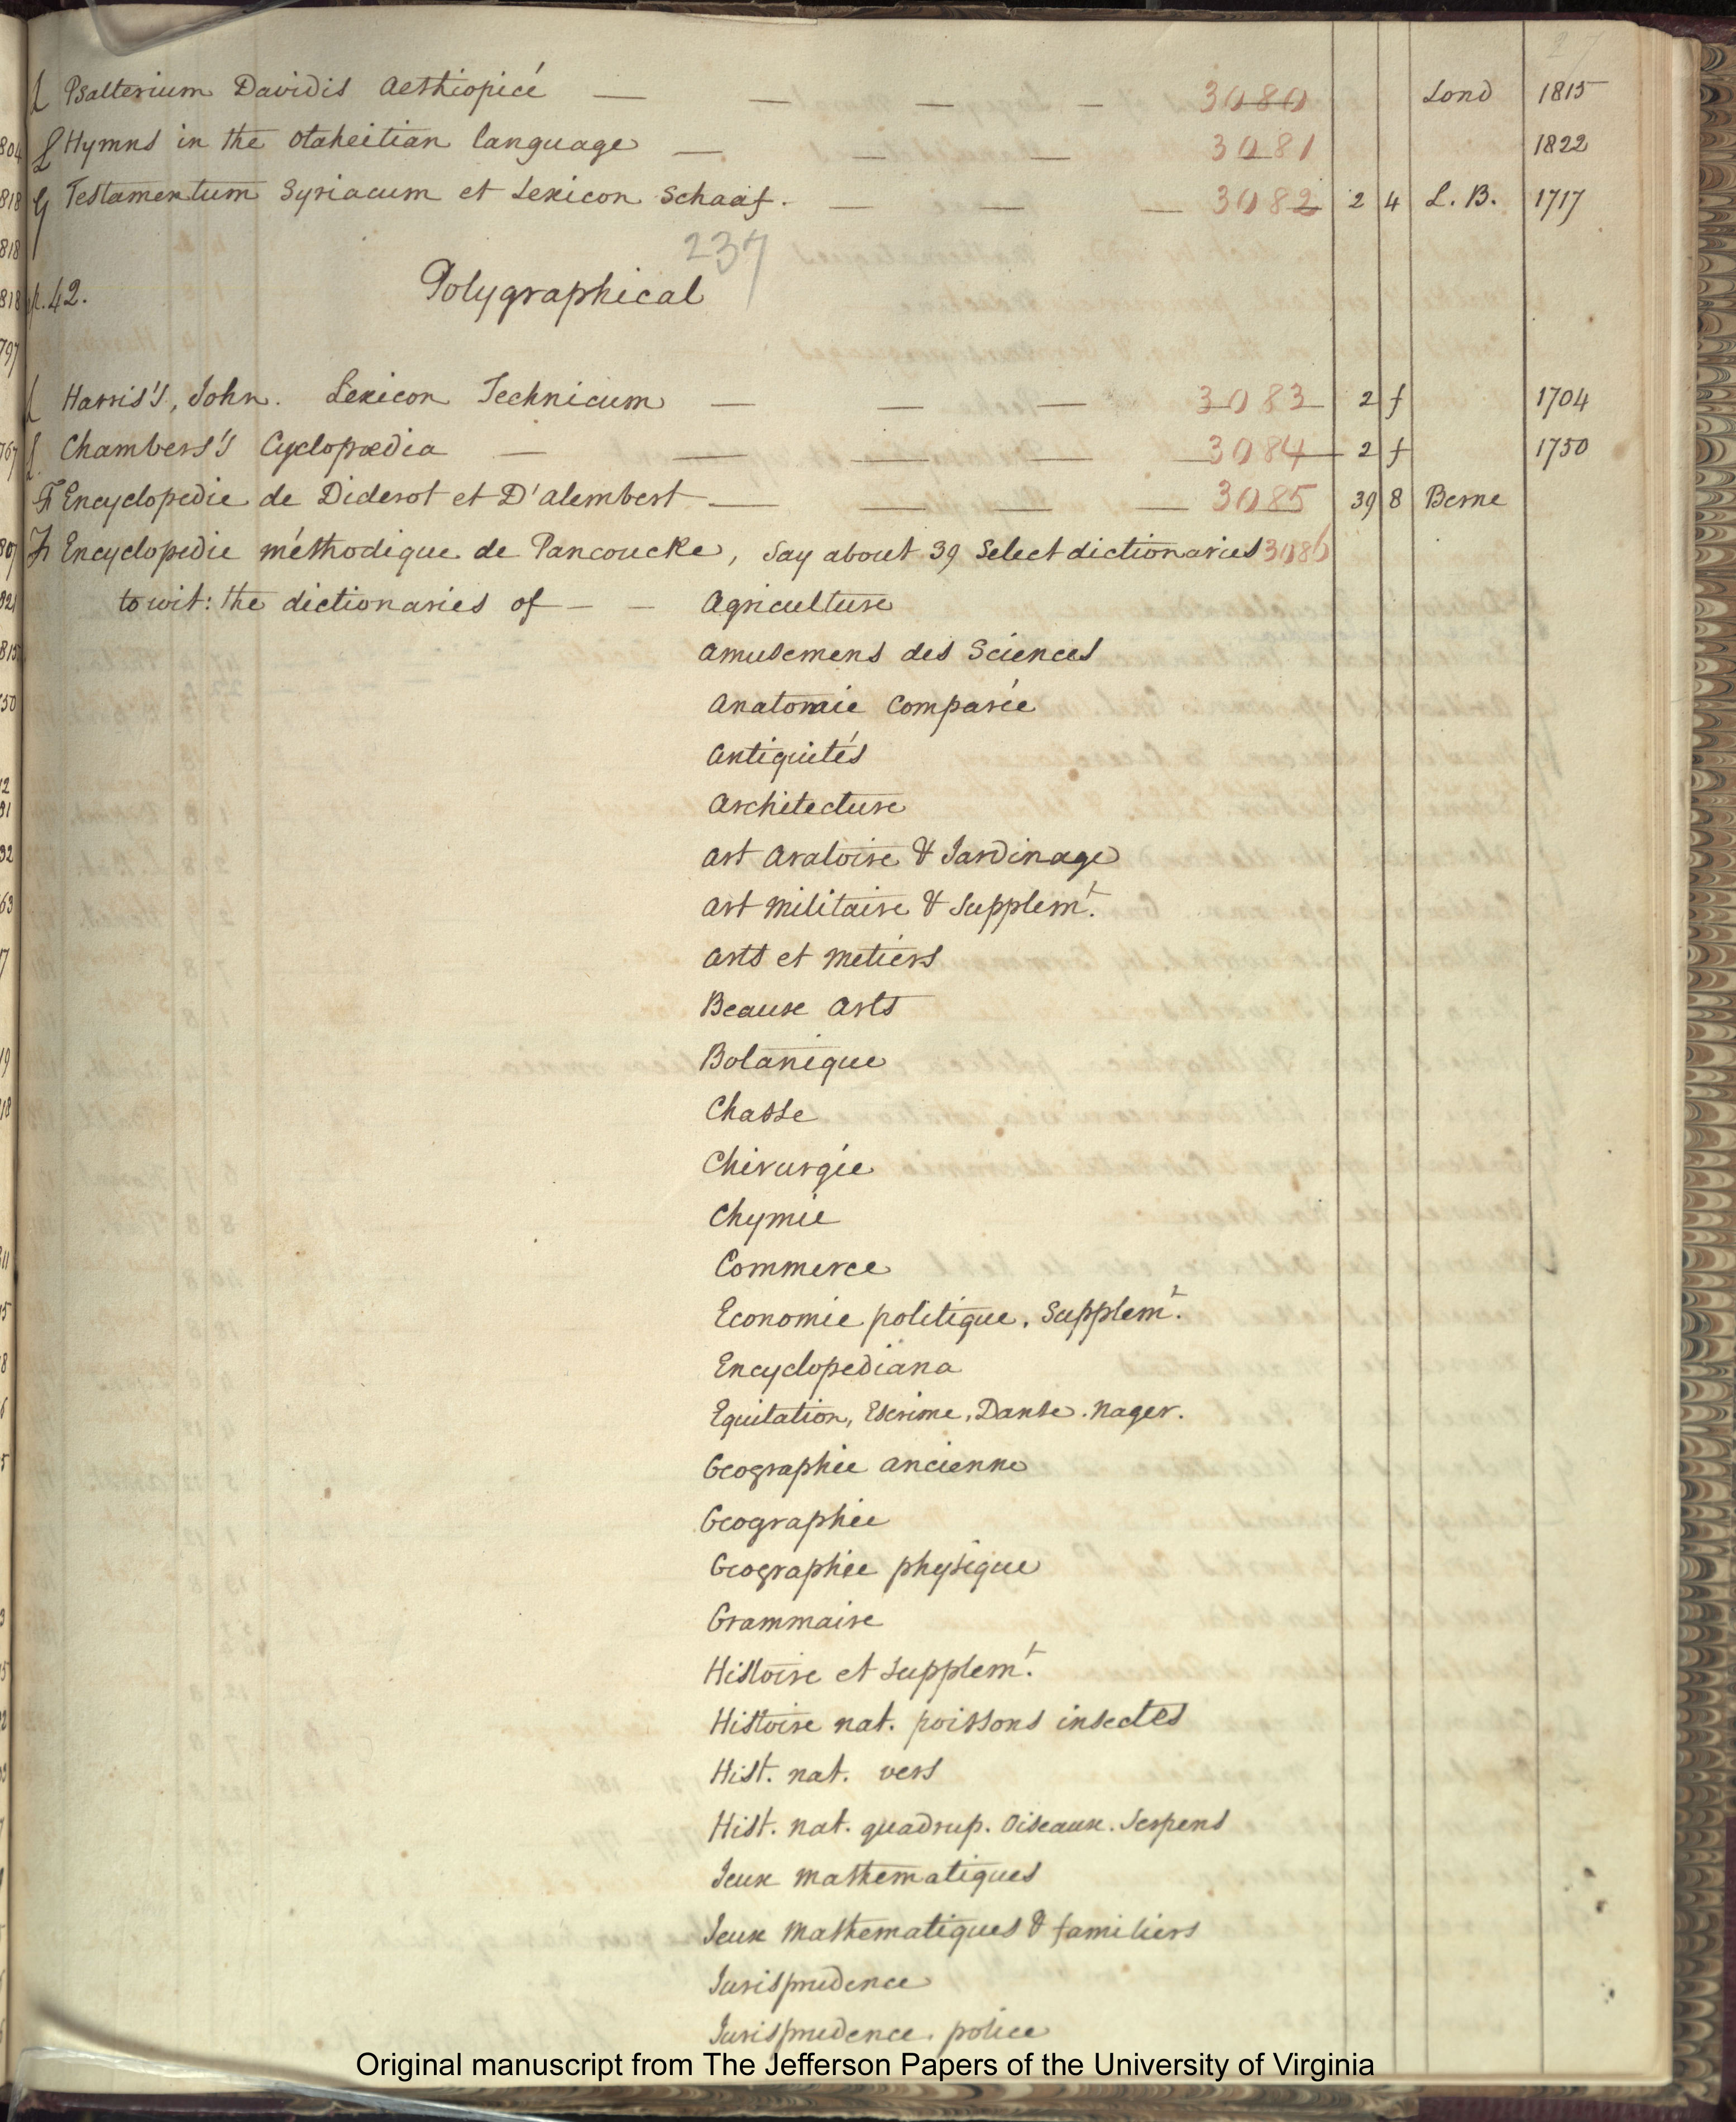 Psalterium Davidis Aethiopicé — — — — 3080 Lond 1815
Hymns in the Otaheitian language — — — 3081 1822
Testamentum Syriacum et Lexicon Schaaf. — — — 3082 2 4 L. B. 1717
237
p. 42. Polygraphical
Harris's, John. Lexicon Technicum — — — 3083 2 f 1704
Chambers's Cyclopædia — — — — 3084 2 f 1750
Encyclopedie de Diderot et D'alembert — — — — 3085 39 8 Berne
Encyclopedie méthodique de Pancoucke, say about 39 select dictionaries 3086
to wit: the dictionaries of — — Agriculture
Amusemens des Sciences
Anatomie Comparée
Antiquités
Architecture
Art Aratoire & Jardinage
Art militaire & Supplemt.
Arts et metiers
Beaux Arts
Botanique
Chasse
Chirurgie
Chymie
Commerce
Economie politique. Supplemt.
Encyclopediana
Equitation, Escrime, Danse. Nager.
Geographie ancienne
Geographie
Geographie physique
Grammaire
Histoire et Supplemt.
Histoire nat. poissons insectes
Hist. nat. vers
Hist. nat. quadrup. Oiseaux. Serpens
Jeux mathematiques
Jeux Mathematiques & familiers
Jurisprudence
Jurisprudence. police
Original manuscript from The Jefferson Papers of the University of Virginia